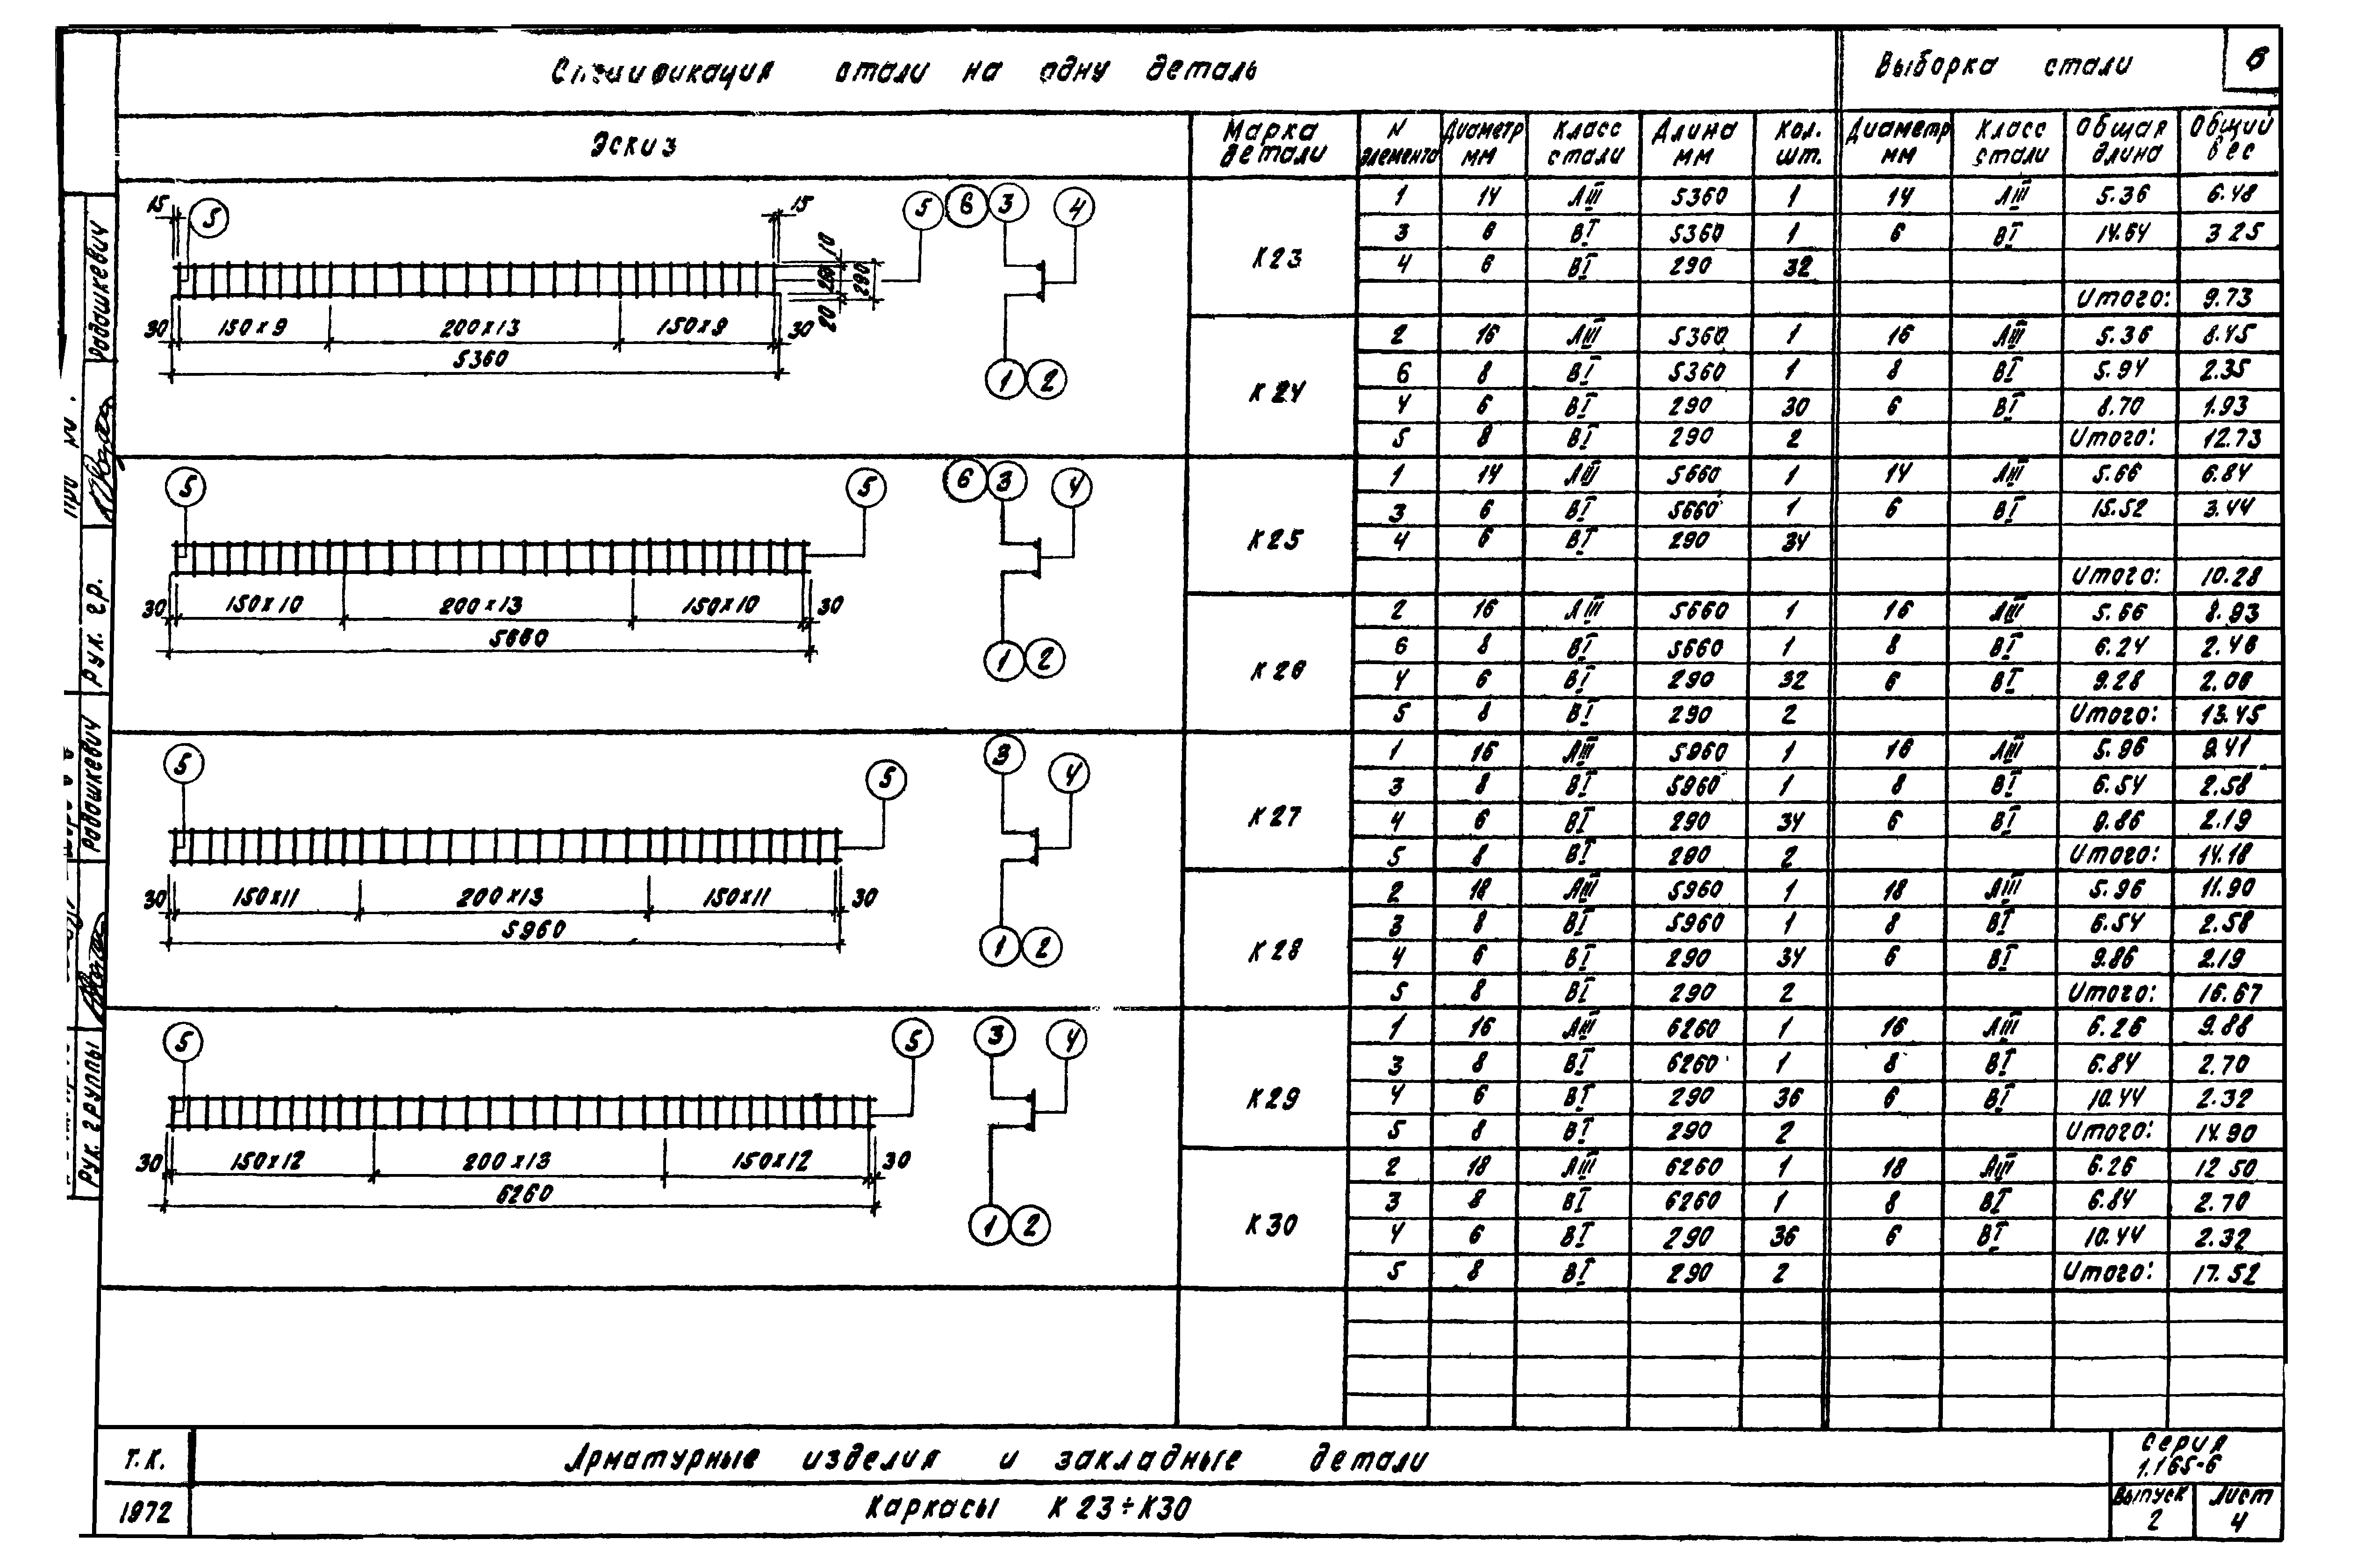 Спецификация стали на одну деталь
Выборка стали
6
Эскиз
Марка детали
N элемента
Диаметр мм
Класс стали
Длина мм
Кол. шт.
Диаметр мм
Класс стали
Общая длина
Общий вес
К23
1 14 АIII 5360 1 14 АIII 5.36 6.48
3 6 ВI 5360 1 6 ВI 14.64 3 25
4 6 ВI 290 32
Итого: 9.73
К24
2 16 АIII 5360 1 16 АIII 5.36 8.45
6 8 ВI 5360 1 8 ВI 5.94 2.35
4 6 ВI 290 30 6 ВI 8.70 1.93
5 8 ВI 290 2 Итого: 12.73
К25
1 14 АIII 5660 1 14 АIII 5.66 6.84
3 6 ВI 5660 1 6 ВI 15.52 3.44
4 6 ВI 290 34
Итого: 10.28
К26
2 16 АIII 5660 1 16 АIII 5.66 8.93
6 8 ВI 5660 1 8 ВI 6.24 2.46
4 6 ВI 290 32 6 ВI 9.28 2.06
5 8 ВI 290 2 Итого: 13.45
К27
1 16 АIII 5960 1 16 АIII 5.96 9.41
3 8 ВI 5960 1 8 ВI 6.54 2.58
4 6 ВI 290 34 6 ВI 9.86 2.19
5 8 ВI 290 2 Итого: 14.18
К28
2 18 АIII 5960 1 18 АIII 5.96 11.90
3 8 ВI 5960 1 8 ВI 6.54 2.58
4 6 ВI 290 34 6 ВI 9.86 2.19
5 8 ВI 290 2 Итого: 16.67
К29
1 16 АIII 6260 1 16 АIII 6.26 9.88
3 8 ВI 6260 1 8 ВI 6.84 2.70
4 6 ВI 290 36 6 ВI 10.44 2.32
5 8 ВI 290 2 Итого: 14.90
К30
2 18 АIII 6260 1 18 АIII 6.26 12 50
3 8 ВI 6260 1 8 ВI 6.84 2.70
4 6 ВI 290 36 6 ВI 10.44 2.32
5 8 ВI 290 2 Итого: 17.52
15 5 15 5 6 3 4
10 260 290 20
30 150х9 200х13 150х9 30
5360
1 2
5 5 6 3 4
30 150х10 200х13 150х10 30
5660
1 2
5 5 3 4
30 150х11 200х13 150х11 30
5960
1 2
5 5 3 4
30 150х12 200х13 150х12 30
6260
1 2
Радашкевич
Рук. гр.
Радашкевич
Рук. группы
Т.К.
1972
Арматурные изделия и закладные детали
Каркасы К23÷К30
Серия
1.165-6
Выпуск
2
Лист
4